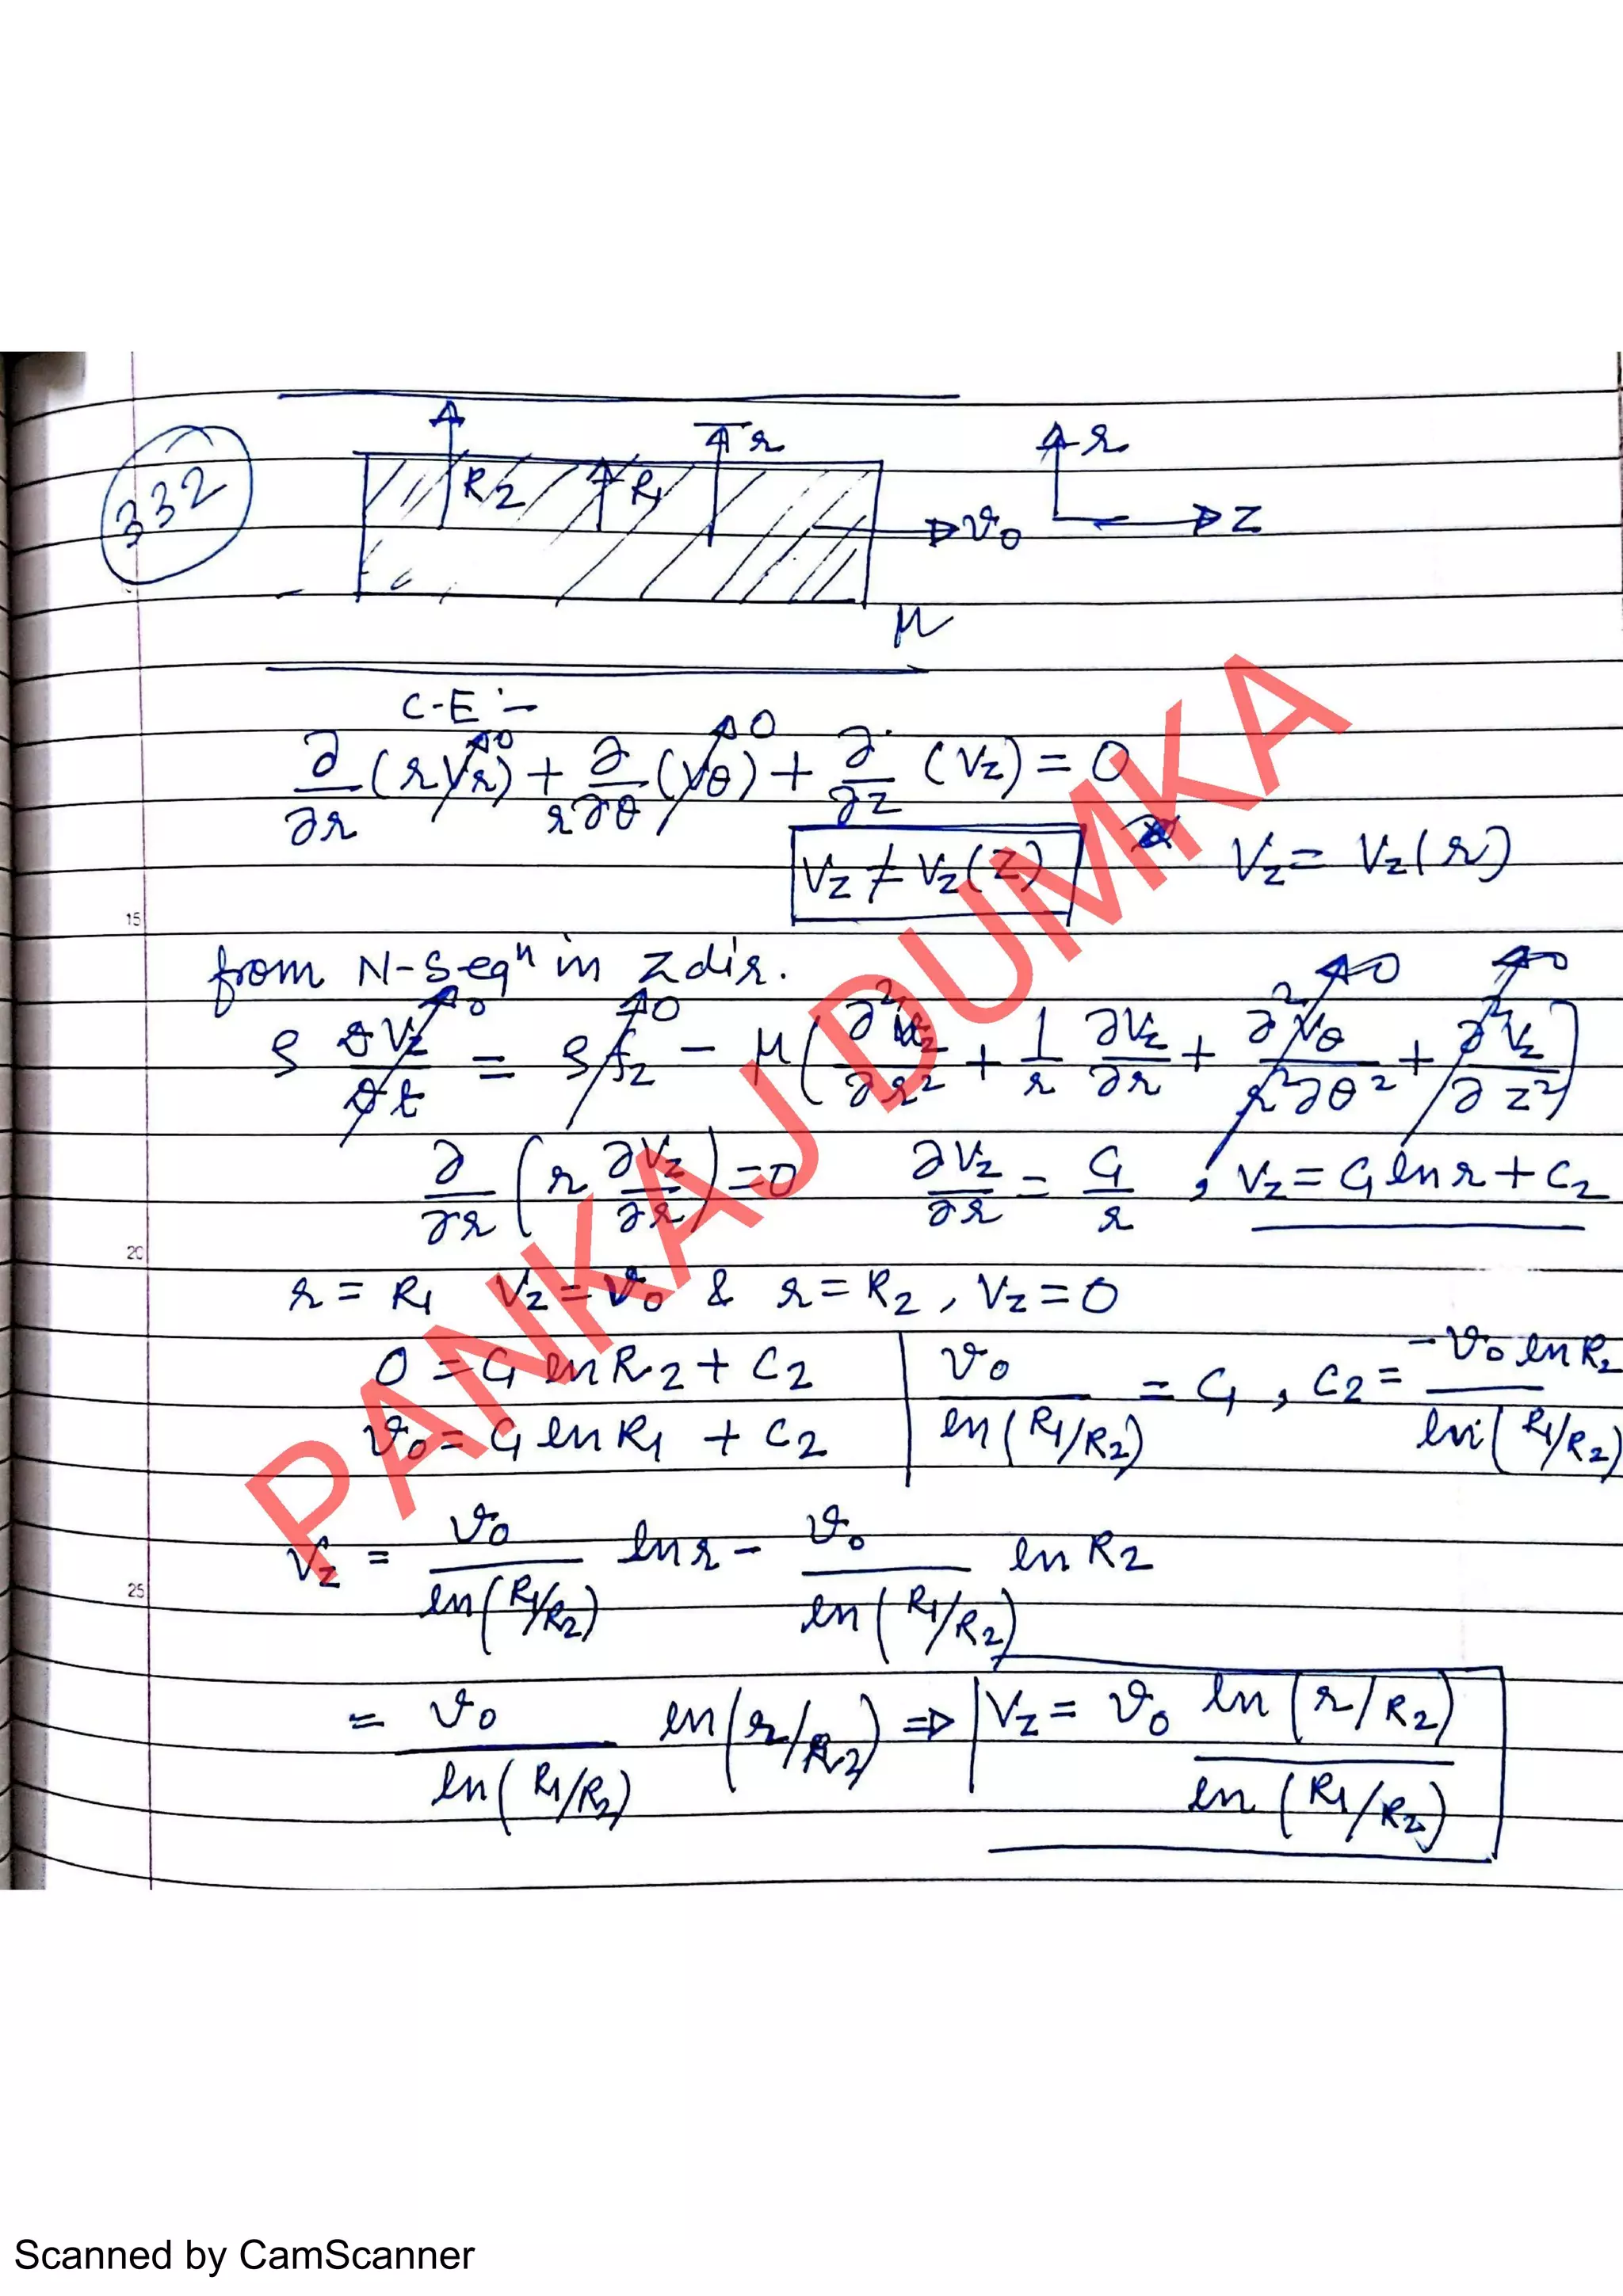 332
R2 R1 r v0 r z
μ
C-E :-
∂/∂r (r Vr)→0 + ∂/r∂θ (Vθ)→0 + ∂/∂z (Vz) = 0
Vz ≠ Vz(z) Vz = Vz(r)
15
from N-S eqn in z dir.
ρ DVz/Dt→0 = ρfz→0 - μ(∂²Vz/∂r² + 1/r ∂Vz/∂r + ∂²Vθ/r²∂θ²→0 + ∂²Vz/∂z²→0)
∂/∂r (r ∂Vz/∂r) = 0 ∂Vz/∂r = C1/r , Vz = C1 ln r + C2
20
r = R1 Vz = v0 & r = R2, Vz = 0
0 = C1 ln R2 + C2 | v0/ln(R1/R2) = C1 , C2 = -v0 ln R2/ln(R1/R2)
v0 = C1 ln R1 + C2
Vz = v0/ln(R1/R2) ln r - v0/ln(R1/R2) ln R2
25
= v0/ln(R1/R2) ln(r/R2) ⇒ Vz = v0 ln(r/R2)/ln(R1/R2)
PANKAJ DUMKA
Scanned by CamScanner